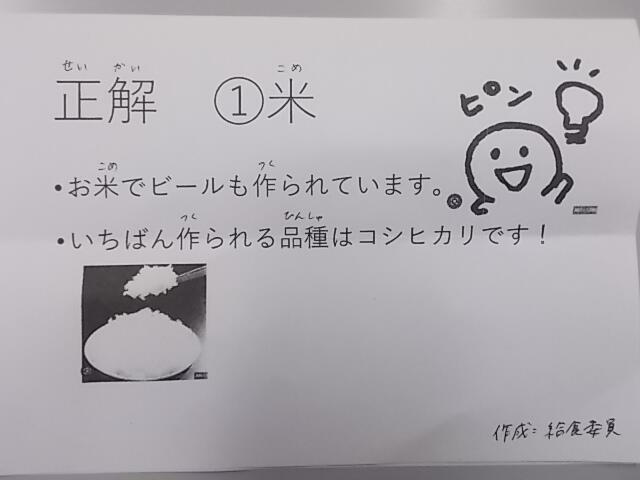 せい かい こめ
正解 ①米
ピン
こめ つく
•お米でビールも作られています。
つく ひんしゅ
•いちばん作られる品種はコシヒカリです！
作成：給食委員